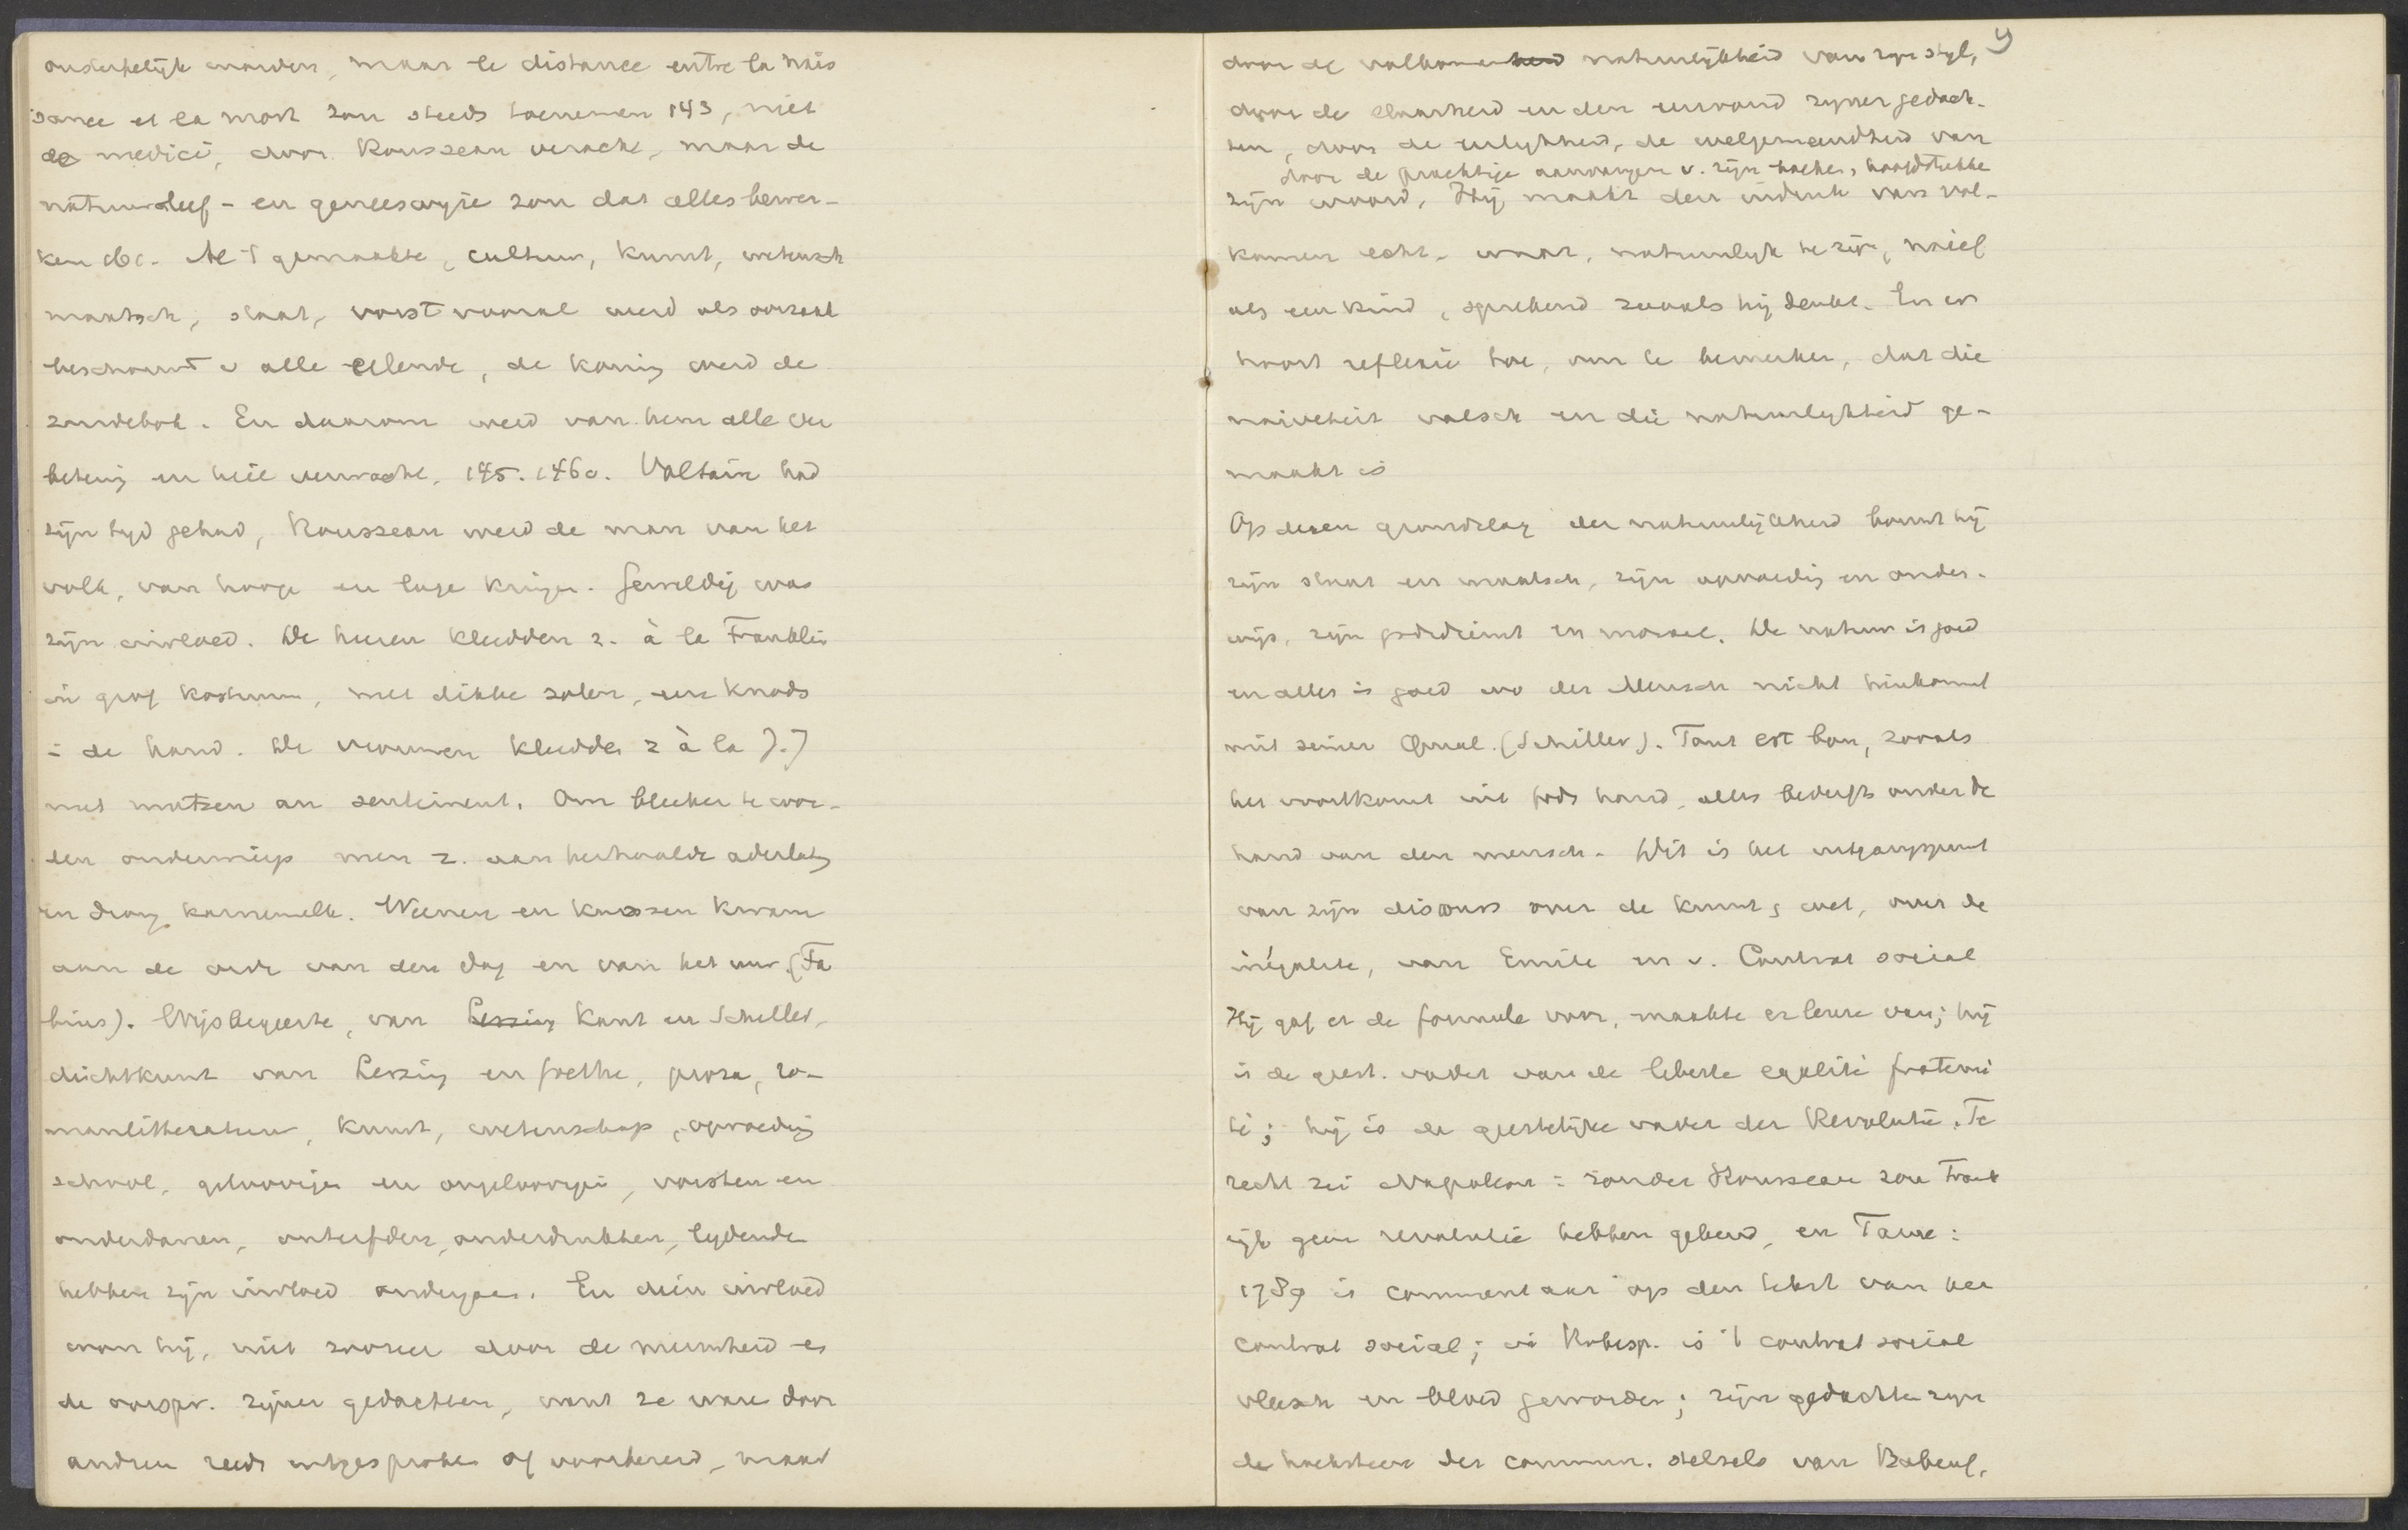 onsterfelijk worden, maar la distance entre la nais
sance et la mort zou steeds toenemen 143, niet
de medici, door Rousseau veracht, maar de
natuurleef- en geneeswijze zou dat alles bewer-
ken etc. Al 't gemaakte, cultuur, kunst, wetensch
maatsch, staat, vorst vooral werd als oorzaak
beschouwd v alle ellende, de koning werd de
zondebok. En daarom werd van hem alle ver
betering en heil verwacht, 145. 146c. Voltaire had
zijn tijd gehad, Rousseau werd de man van het
volk, van hooge en lage kringen. Geweldig was
zijn invloed. De heeren kleedden z. à la Franklin
in grof kostuum, met dikke zolen, een knods
in de hand. De vrouwen kleedden z à la J.J
met mutsen au sentiment. Om bleeker te wor-
den onderwierp men z. aan herhaalde aderlating
en dronk karnemelk. Weenen en kussen kwam
aan de orde van den dag en van het uur. (Fa
bius). Wijsbegeerte, van Lessing Kant en Schiller,
dichtkunst van Lessing en Goethe, proza, ro-
manlitteratuur, kunst, wetenschap, opvoeding
school, geloovigen en ongeloovigen, vorsten en
onderdanen, onterfden, onderdrukten, lydenden
hebben zijn invloed ondergaan. En dien invloed
won hij, niet zoozeer door de nieuwheid en
de oorspr. zijner gedachten, want ze waren door
andren reeds uitgesproken of voorbereid, maar
9
door de volkomenheid natuurlijkheid van zijn styl,
door de klaarheid en den eenvoud zijner gedach-
ten, door de eerlykheid, de welgemeendheid van
door de prachtige aanvangen v. zijn boeken, hoofdstukken
zijn woord. Hij maakt den indruk van vol-
komen echt, waar, natuurlyk te zijn, naief
als een kind, sprekend zooals hij denkt. En er
hoort reflexie toe, om te bemerken, dat die
naiveteit valsch en die natuurlykheid ge-
maakt is
Op dezen grondslag der natuurlijkheid bouwt hij
zijn staat en maatsch, zijn opvoeding en onder-
wijs, zijn godsdienst en moraal. De natuur is goed
en alles is goed wo der Mensch nicht hinkommt
mit seiner Qual. (Schiller). Tout est bon, zooals
het voortkomt uit Gods hand, alles bederft onder de
hand van den mensch. Dit is het uitgangspunt
van zijn discours over de kunst & wet, over de
inégalité, van Emile en v. Contrat social
Hij gaf er de formule voor, maakte er leuze van; hij
is de geest. vader van de liberté egalité fraterni
té; hij is de geestelijke vader der Revolutie. Te
recht zei Napoleon: zonder Rousseau zou Frank
rijk geen revolutie hebben gekend, en Taine:
1789 is commentaar op den tekst van het
contrat social; in Robesp. is 't contrat social
vleesch en bloed geworden; zijn gedachten zijn
de hoeksteen der commun. stelsels van Babeuf.